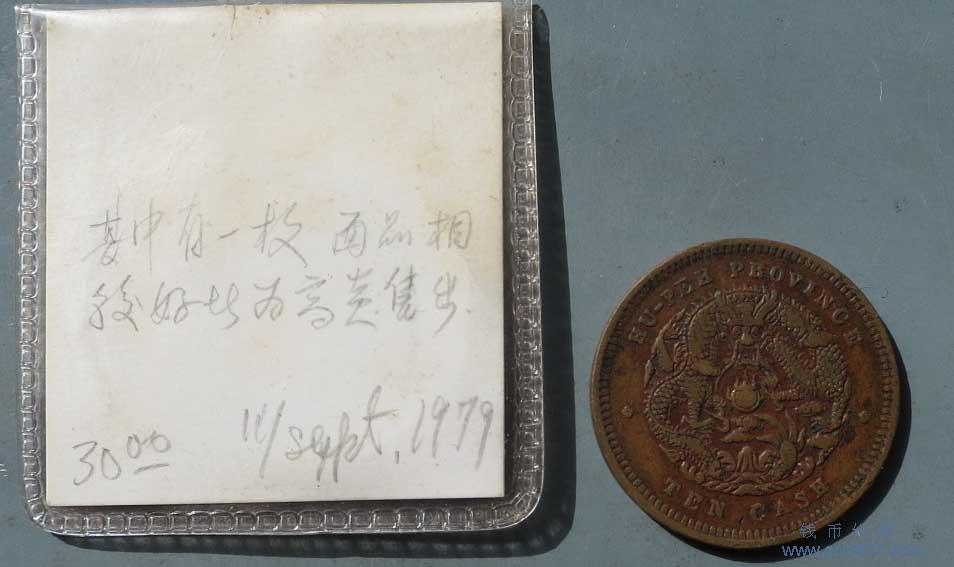 其中有一枚面品相
较好此为高美售出.
30.00
11/sept,1979
HU-PEH PROVINCE
TEN CASH
钱币
www.